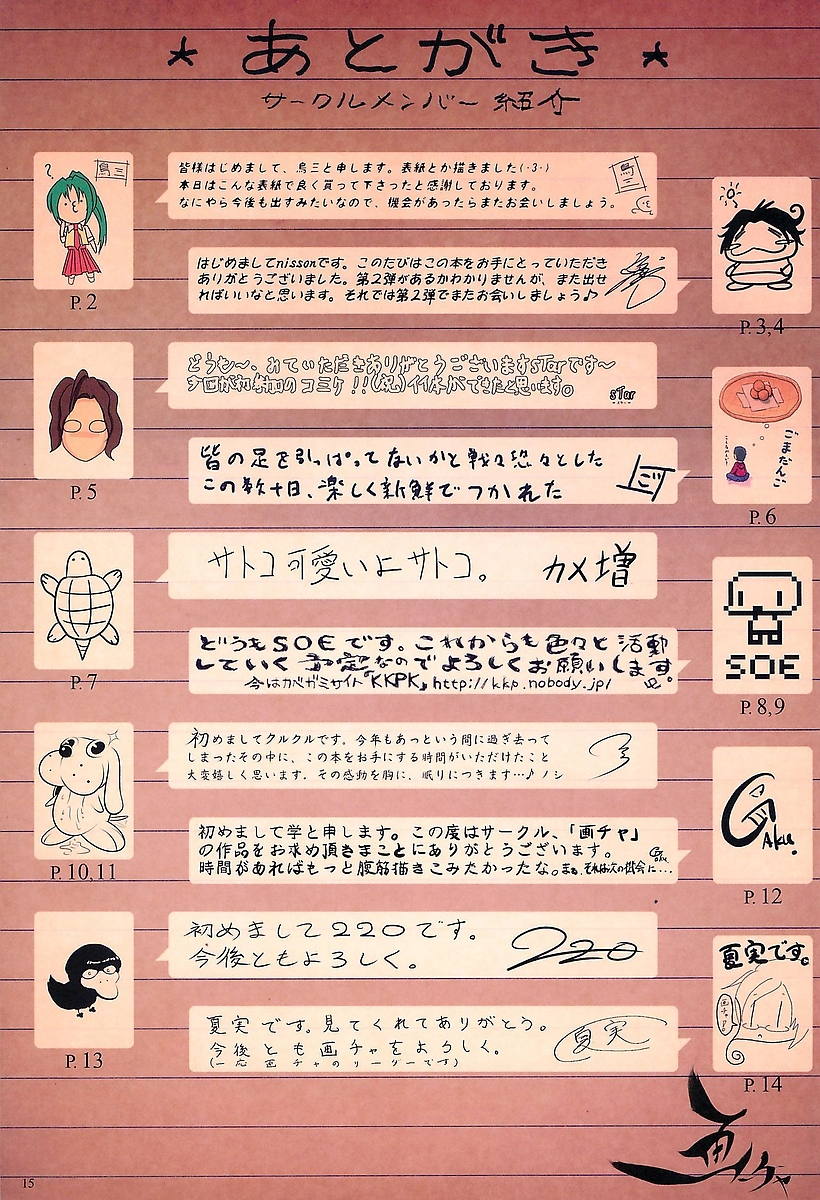 ★ あとがき ★
サークルメンバー 紹介
?
鳥三
P.2
皆様はじめまして、鳥三と申します。表紙とか描きました(・3・)
本日はこんな表紙で良く買って下さったと感謝しております。
なにやら今後も出すみたいなので、機会があったらまたお会いしましょう。
鳥三
はじめましてnissonです。このたびはこの本をお手にとっていただき
ありがとうございました。第2弾があるかわかりませんが、また出せ
ればいいなと思います。それでは第2弾でまたお会いしましょう♪
P.3,4
P.5
どうも〜、みていただきありがとうございますsTarです〜
今回が初参加のコミケ!!(祝)イイ本ができたと思います。
sTar
皆の足を引っぱってないかと戦々恐々とした
この数十日、楽しく新鮮でつかれた
ごまだんご
P.6
P.7
サトコ可愛いよサトコ。
カメ増
どうもSOEです。これからも色々と活動
していく予定なのでよろしくお願いします。
今はカベガミサイト「KKPK」http://kkp.nobody.jp/
SOE
P.8,9
P.10,11
初めましてクルクルです。今年もあっという間に過ぎ去って
しまったその中に、この本をお手にする時間がいただけたこと
大変嬉しく思います。その感動を胸に、眠りにつきます…♪ノシ
初めまして学と申します。この度はサークル、「画チャ」
の作品をお求め頂きまことにありがとうございます。
時間があればもっと腹筋描きこみたかったな。まぁ、それは次の機会に…
Gaku.
GAku.
P.12
P.13
初めまして220です。
今後ともよろしく。
220
夏実です。見てくれてありがとう。
今後とも画チャをよろしく。
(一応画チャのリーダーです)
夏実
夏実です。
画チャ
P.14
画チャ
15